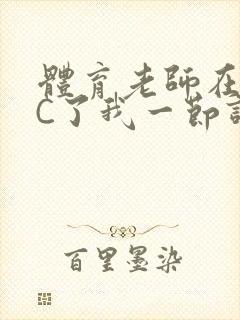 體育老師在
C了我一節
百里墨染